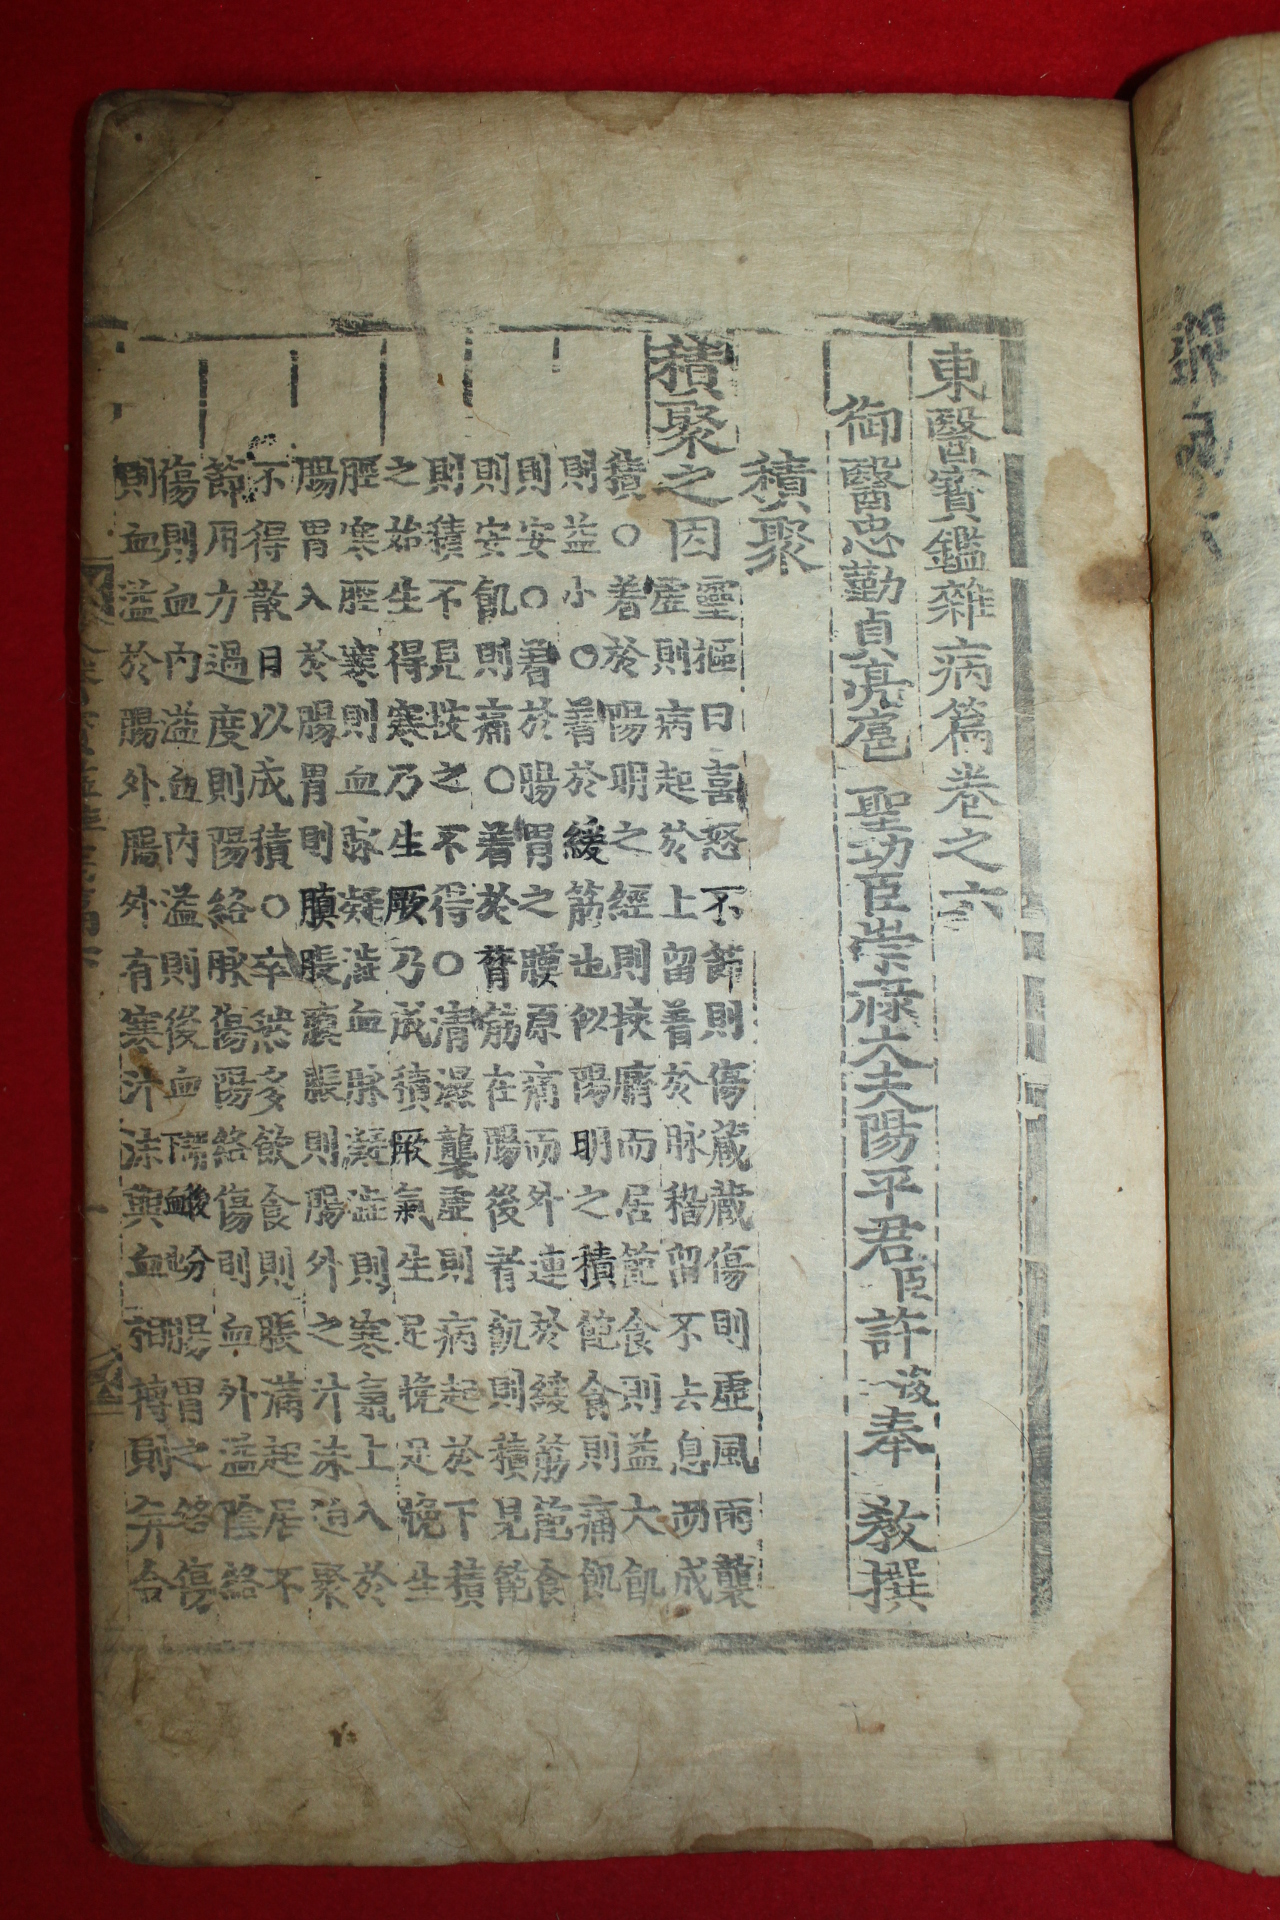 東醫寶鑑雜病篇卷之六
御醫忠勤貞亮扈 聖功臣崇祿大夫陽平君臣許浚奉 敎撰
積聚
積聚之因 靈樞曰喜怒不節則傷藏藏傷則虛風雨襲
虛則病起於上留着於脉稽留不去息而成
積○着於陽明之經則挾臍而居飽食則益大飢
則益小○着於緩筋也似陽明之積飽食則痛飢
則安○着於腸胃之膜原痛而外連於緩筋飽食
則安飢則痛○着於膂筋在腸後者飢則積見飽
則積不見按之不得○淸濕襲虛則病起於下積
之始生得寒乃生厥乃成積厥氣生足悗足悗生
脛寒脛寒則血脉凝澁血脉凝澁則寒氣上入於
腸胃入於腸胃則䐜脹䐜脹則腸外之汁沫迫聚
不得散日以成積○卒然多飲食則脹滿起居不
節用方過度則陽絡脉傷陽絡傷則血外溢陰絡
傷則血內溢血內溢則後血謂後下血腸胃之絡傷
則血溢於腸外腸外有寒汁沫與血相搏則并合